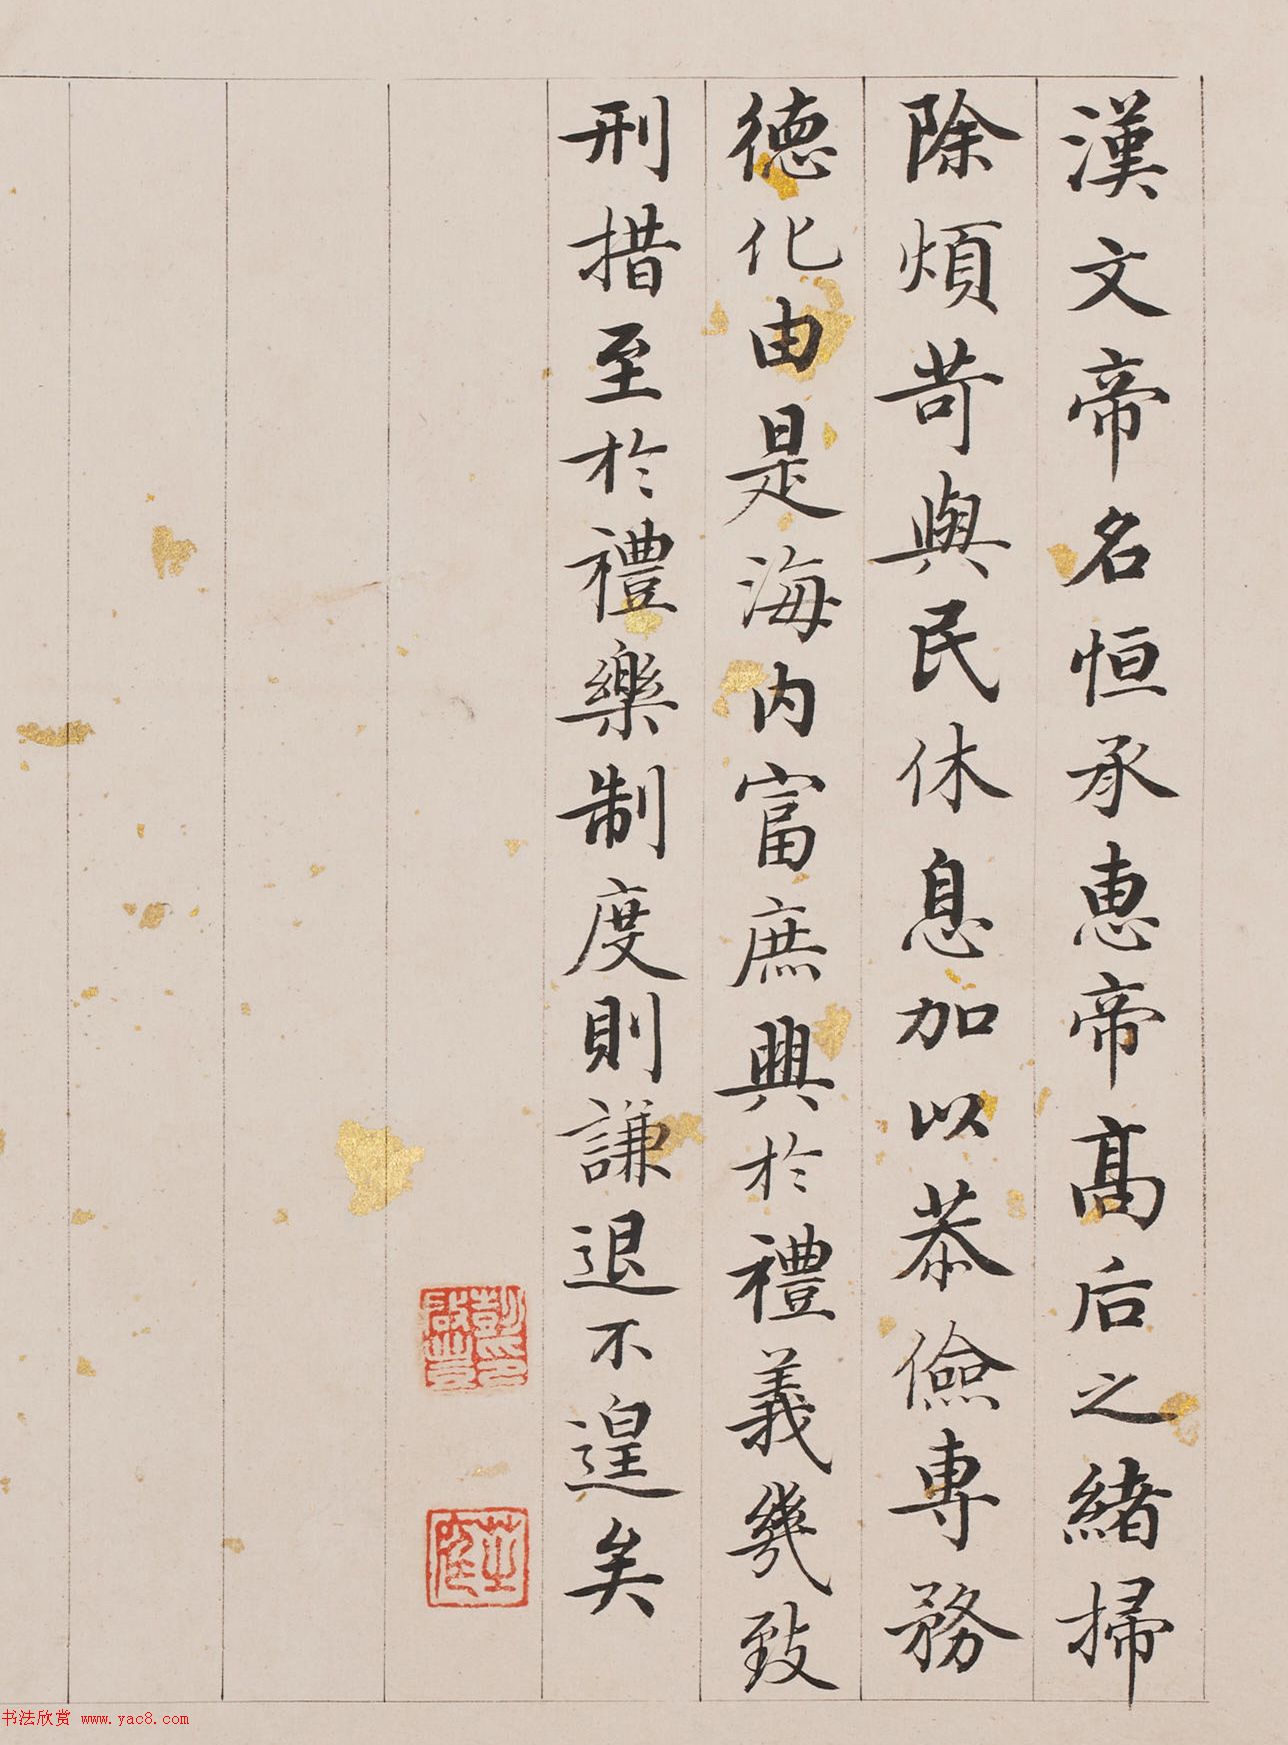 漢文帝名恒承惠帝高后之緒掃
除煩苛與民休息加以恭儉專務
德化由是海内富庶興於禮義幾致
刑措至於禮樂制度則謙退不遑矣
彭印啟豐
芝庭
书法欣赏 www.yac8.com